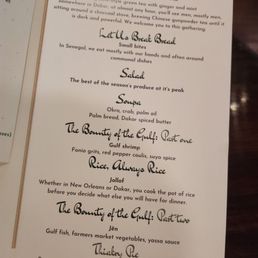 style green tea with ginger and mint
somewhere in Dakar, at almost any hour, you'll see men, mostly men,
sitting around a charcoal stove, brewing Chinese gunpowder tea until it
is dark and powerful. We welcome you to this gathering.
Let Us Break Bread
Small bites
In Senegal, we eat mostly with our hands and often around
communal dishes
Salad
The best of the season's produce at it's peak
Soupa
Okra, crab, palm oil
Palm bread, Dakar spiced butter
The Bounty of the Gulf: Part one
Gulf shrimp
Fonio grits, red pepper coulis, suya spice
Rice, Always Rice
Jollof
Whether in New Orleans or Dakar, you cook the pot of rice
before you decide what else you will have for dinner.
The Bounty of the Gulf: Part two
Jën
Gulf fish, farmers market vegetables, yassa sauce
Thiakry Pie